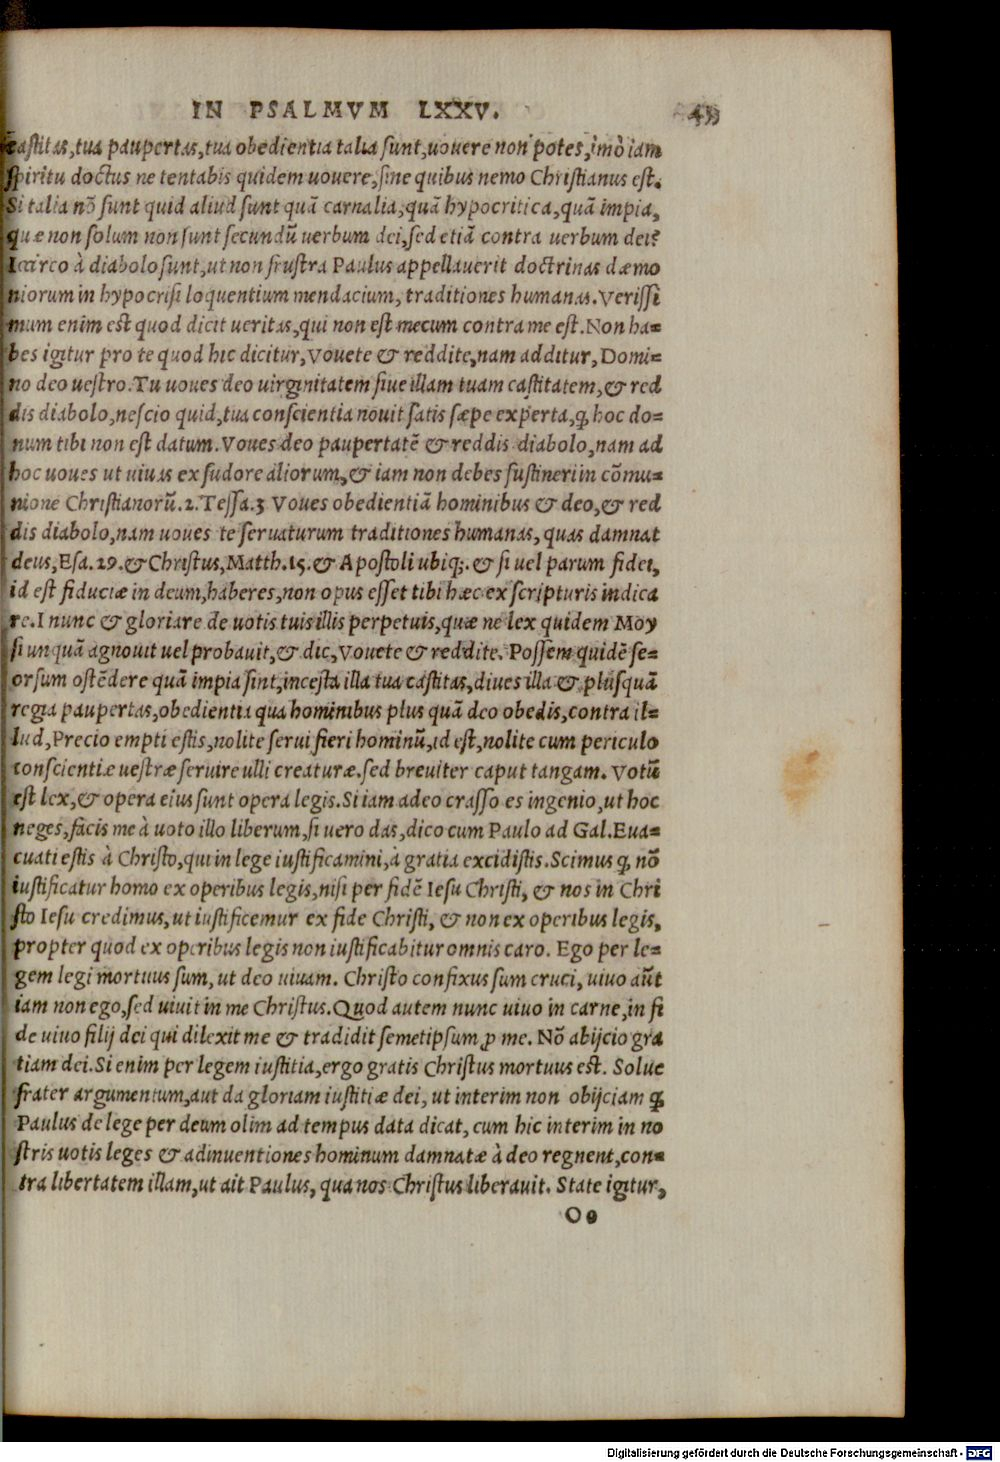 IN PSALMVM LXXV.
castitas, tua paupertas, tua obedientia talia sunt, uouere non potes, imò iam
spiritu doctus ne tentabis quidem uouere, sine quibus nemo Christianus est.
Si talia nõ sunt quid aliud sunt quã carnalia, quã hypocritica, quã impia,
quæ non solum non sunt secundũ uerbum dei, sed etiã contra uerbum dei?
Iccirco à diabolo sunt, ut non frustra Paulus appellauerit doctrinas dæmo
niorum in hypocrisi loquentium mendacium, traditiones humanas. Verissi
mum enim est quod dicit ueritas, qui non est mecum contra me est. Non ha=
bes igitur pro te quod hic dicitur, Vouete & reddite, nam additur, Domi=
no deo uestro. Tu uoues deo uirginitatem siue illam tuam castitatem, & red
dis diabolo, nescio quid, tua conscientia nouit satis sæpe experta, ꝙ hoc do=
num tibi non est datum. Voues deo paupertatẽ & reddis diabolo, nam ad
hoc uoues ut uiuas ex sudore aliorum, & iam non debes sustineri in cõmu=
nione Christianorũ. 2. Tessa. 3 Voues obedientiã hominibus & deo, & red
dis diabolo, nam uoues te seruaturum traditiones humanas, quas damnat
deus, Esa. 29. & Christus, Matth. 15. & Apostoli ubiq;. & si uel parum fidei,
id est fiduciæ in deum, haberes, non opus esset tibi hæc ex scripturis indica
re. I nunc & gloriare de uotis tuis illis perpetuis, quæ ne lex quidem Moy
si unquã agnouit uel probauit, & dic, Vouete & reddite. Possem quidẽ se=
orsum ostẽdere quã impia sint, incesta illa tua castitas, diues illa & plusquã
regia paupertas, obedientia qua hominibus plus quã deo obedis, contra il=
lud, Precio empti estis, nolite serui fieri hominũ, id est, nolite cum periculo
conscientiæ uestræ seruire ulli creaturæ. sed breuiter caput tangam. Votũ
est lex, & opera eius sunt opera legis. Si iam adeo crasso es ingenio, ut hoc
neges, facis me à uoto illo liberum, si uero das, dico cum Paulo ad Gal. Eua=
cuati estis à Christo, qui in lege iustificamini, à gratia excidistis. Scimus ꝙ nõ
iustificatur homo ex operibus legis, nisi per fidẽ Iesu Christi, & nos in Chri
sto Iesu credimus, ut iustificemur ex fide Christi, & non ex operibus legis,
propter quod ex operibus legis non iustificabitur omnis caro. Ego per le=
gem legi mortuus sum, ut deo uiuam. Christo confixus sum cruci, uiuo aũt
iam non ego, sed uiuit in me Christus. Quod autem nunc uiuo in carne, in fi
de uiuo filij dei qui dilexit me & tradidit semetipsum ꝓ me. Nõ abijcio gra
tiam dei. Si enim per legem iustitia, ergo gratis Christus mortuus est. Solue
frater argumentum, aut da gloriam iustitiæ dei, ut interim non obijciam ꝙ
Paulus de lege per deum olim ad tempus data dicat, cum hic interim in no
stris uotis leges & adinuentiones hominum damnatæ à deo regnent, con=
tra libertatem illam, ut ait Paulus, qua nos Christus liberauit. State igitur,
Oo
Digitalisierung gefördert durch die Deutsche Forschungsgemeinschaft - DFG